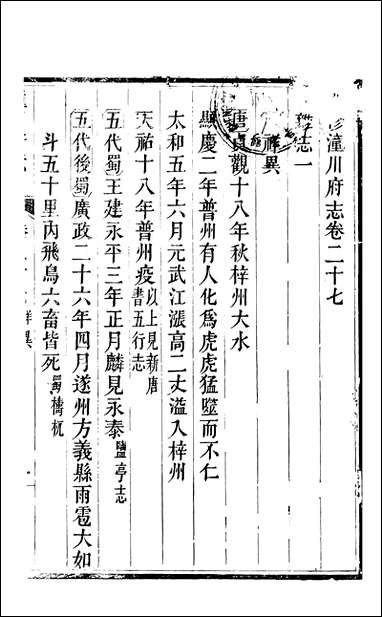 潼川府志卷二十七
志一
祥異
唐貞觀十八年秋梓州大水
顯慶二年普州有人化爲虎虎猛噬而不仁
太和五年六月元武江漲高二丈溢入梓州
天祐十八年普州疫以上見新唐書五行志
五代蜀王建永平三年正月麟見永泰鹽亭志
五代後蜀廣政二十六年四月遂州方義縣雨雹大如
斗五十里內飛鳥六畜皆死蜀檮杌